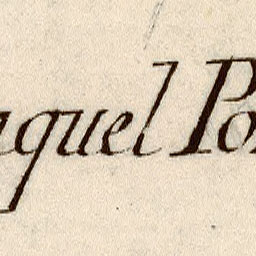 aquel Po